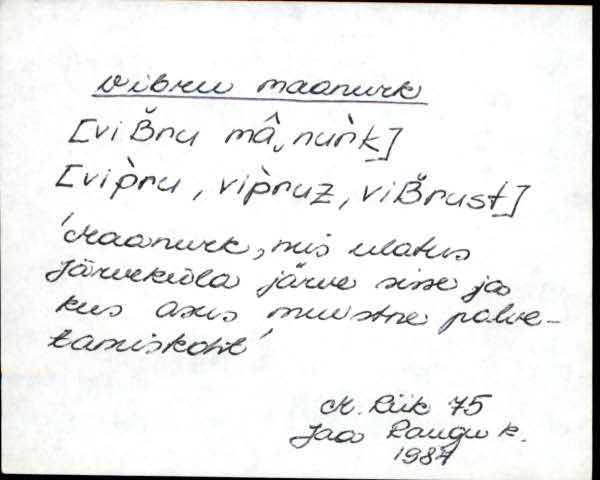 Vibru maanurk
[viB̆ru mâ, nur̀k]
[vip̀ru, vip̀ruz, viB̆rust]
'Maanurk, mis ulatus
Järveküla järve sisse ja
kus asus muistne palve-
tamiskoht'
M. Liik 75
Jaa Raugu k.
1984